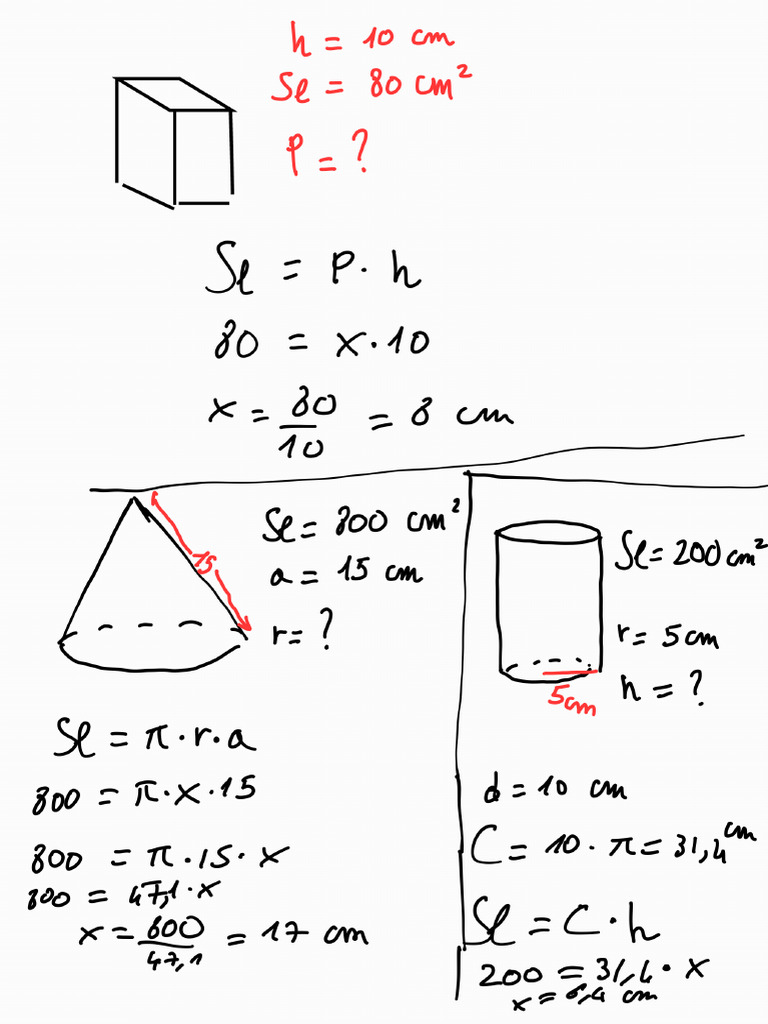 h = 10 cm
Sl = 80 cm²
P = ?
Sl = P · h
80 = x · 10
x = 80/10 = 8 cm
15
Sl = 800 cm²
a = 15 cm
r = ?
Sl = π · r · a
800 = π · x · 15
800 = π · 15 · x
800 = 47,1 · x
x = 800/47,1 = 17 cm
Sl = 200 cm²
r = 5 cm
h = ?
5cm
d = 10 cm
C = 10 · π = 31,4 cm
Sl = C · h
200 = 31,4 · x
x = 6,4 cm